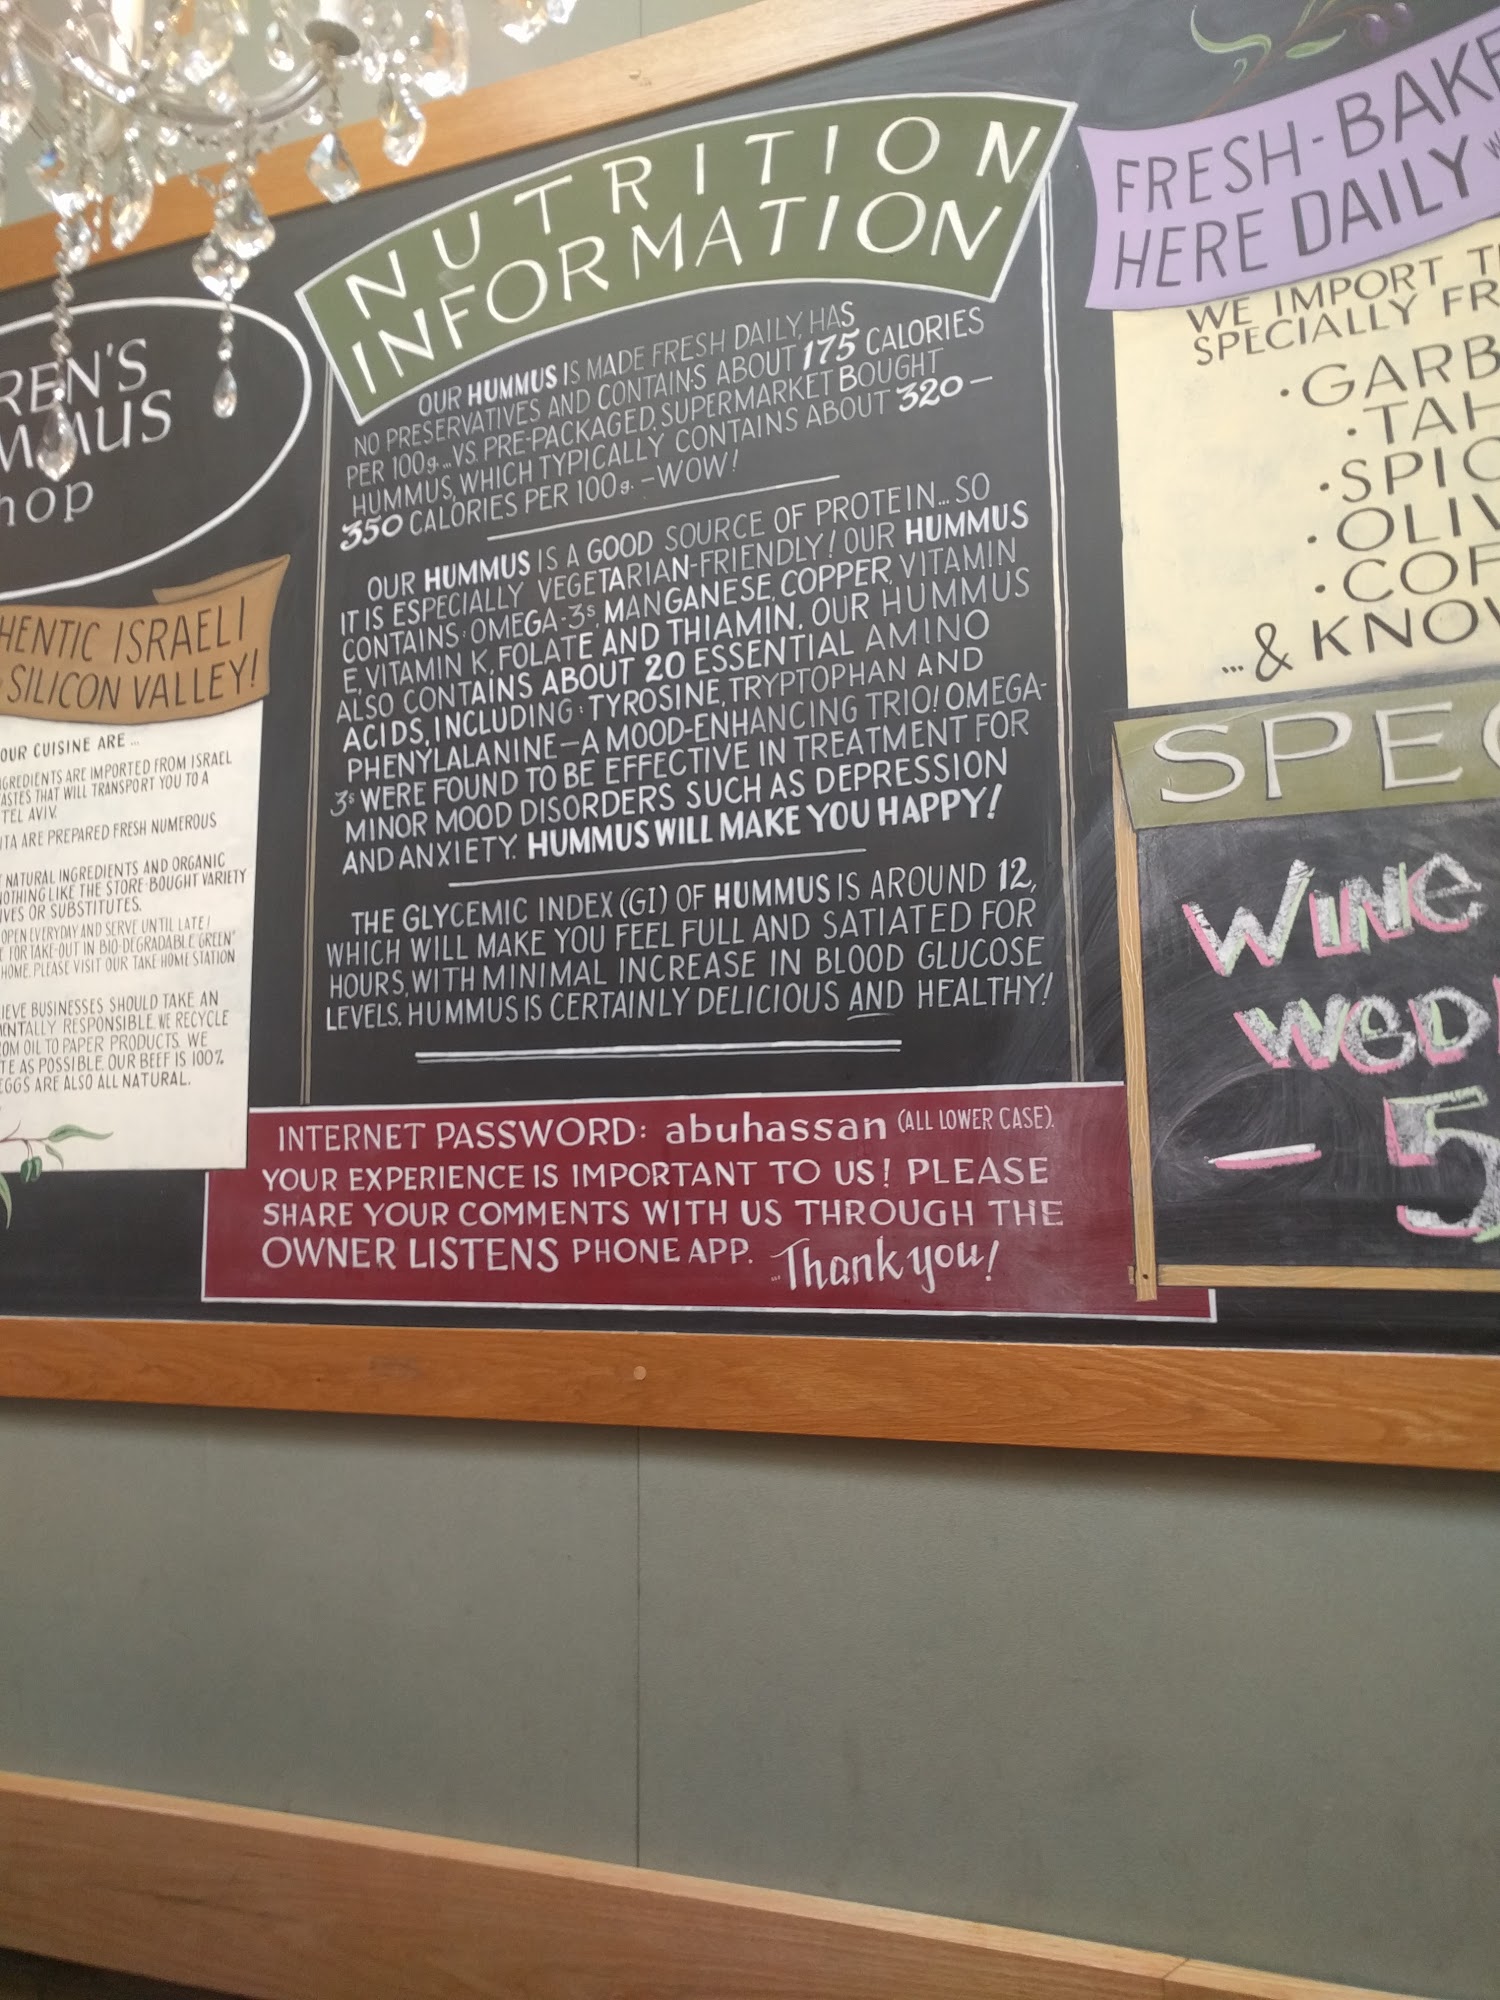 REN'S
MMUS
hop
HENTIC ISRAELI
SILICON VALLEY!
OUR CUISINE ARE ...
GREDIENTS ARE IMPORTED FROM ISRAEL
ASTES THAT WILL TRANSPORT YOU TO A
TEL AVIV.
ITA ARE PREPARED FRESH NUMEROUS
NATURAL INGREDIENTS AND ORGANIC
NOTHING LIKE THE STORE-BOUGHT VARIETY
IVES OR SUBSTITUTES.
OPEN EVERYDAY AND SERVE UNTIL LATE!
FOR TAKE-OUT IN BIO-DEGRADABLE GREEN"
HOME, PLEASE VISIT OUR TAKE HOME STATION
IEVE BUSINESSES SHOULD TAKE AN
MENTALLY RESPONSIBLE. WE RECYCLE
OM OIL TO PAPER PRODUCTS. WE
TE AS POSSIBLE. OUR BEEF IS 100%
EGGS ARE ALSO ALL NATURAL.
NUTRITION
INFORMATION
OUR HUMMUS IS MADE FRESH DAILY, HAS
NO PRESERVATIVES AND CONTAINS ABOUT 175 CALORIES
PER 100g... VS. PRE-PACKAGED, SUPERMARKET BOUGHT
HUMMUS, WHICH TYPICALLY CONTAINS ABOUT 320 –
350 CALORIES PER 100g. – WOW!
OUR HUMMUS IS A GOOD SOURCE OF PROTEIN... SO
IT IS ESPECIALLY VEGETARIAN-FRIENDLY! OUR HUMMUS
CONTAINS: OMEGA-3s MANGANESE, COPPER, VITAMIN
E, VITAMIN K, FOLATE AND THIAMIN. OUR HUMMUS
ALSO CONTAINS ABOUT 20 ESSENTIAL AMINO
ACIDS, INCLUDING: TYROSINE, TRYPTOPHAN AND
PHENYLALANINE – A MOOD-ENHANCING TRIO! OMEGA-
3s WERE FOUND TO BE EFFECTIVE IN TREATMENT FOR
MINOR MOOD DISORDERS SUCH AS DEPRESSION
AND ANXIETY. HUMMUS WILL MAKE YOU HAPPY!
THE GLYCEMIC INDEX (GI) OF HUMMUS IS AROUND 12,
WHICH WILL MAKE YOU FEEL FULL AND SATIATED FOR
HOURS, WITH MINIMAL INCREASE IN BLOOD GLUCOSE
LEVELS. HUMMUS IS CERTAINLY DELICIOUS AND HEALTHY!
INTERNET PASSWORD: abuhassan (ALL LOWER CASE).
YOUR EXPERIENCE IS IMPORTANT TO US! PLEASE
SHARE YOUR COMMENTS WITH US THROUGH THE
OWNER LISTENS PHONE APP. ... Thank you!
FRESH-BAKE
HERE DAILY W
WE IMPORT T
SPECIALLY FR
· GARB
· TAH
· SPIC
· OLIV
· COF
... & KNOW
SPEC
WINE
WED
- 5